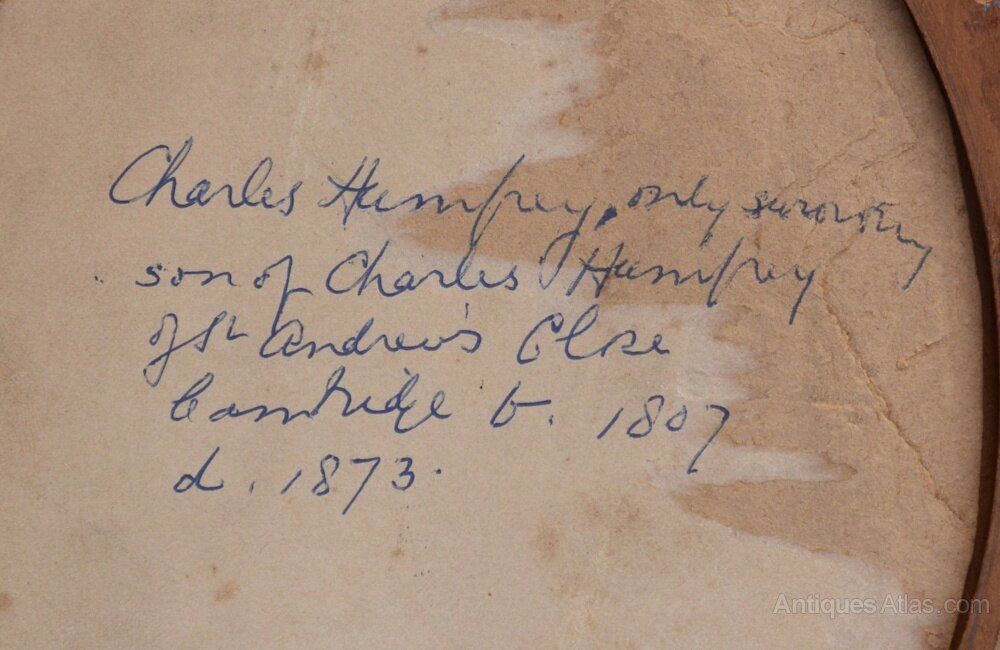 Charles Humfrey, only surviving
son of Charles Humfrey
of St Andrew's Close
Cambridge b. 1807
d. 1873.
Antiques Atlas.com